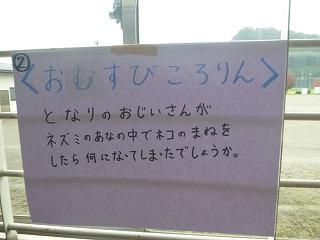 ②
<おむすびころりん>
となりのおじいさんが
ネズミのあなの中でネコのまねを
したら何になってしまったでしょうか。